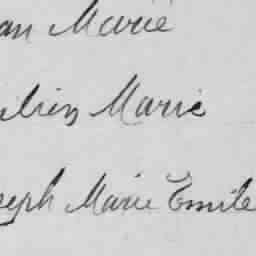 an Marie
Marie
seph Marie Emile